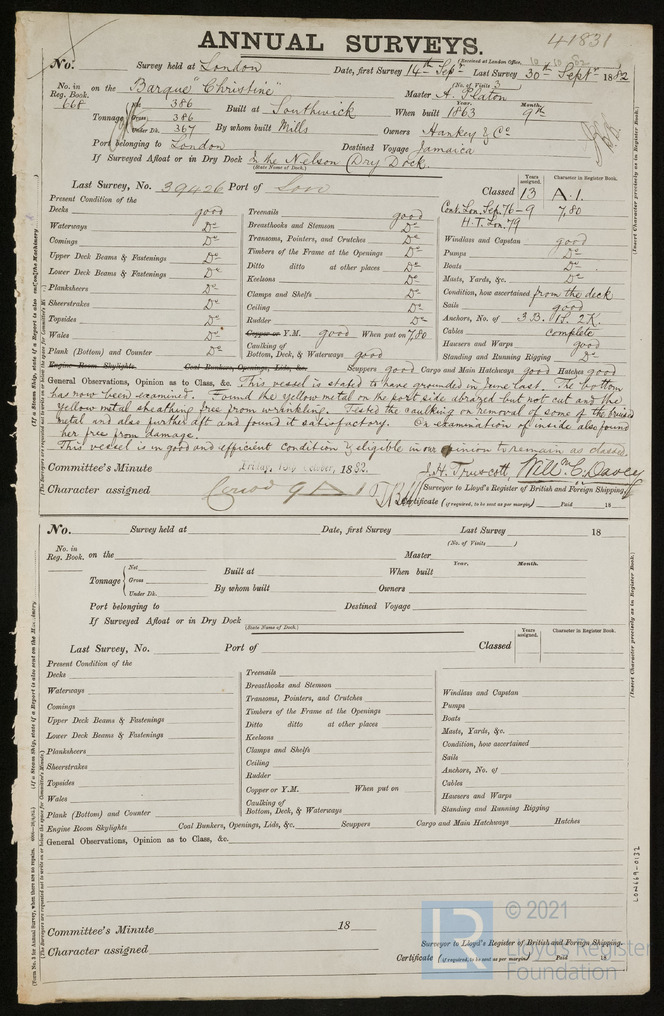 ANNUAL SURVEYS. 41831
(Received at London Office, 10 10 82)
No. Survey held at London Date, first Survey 14th Sepr Last Survey 30th Septr 1882
(No. of Visits 3)
No. in Reg. Book. 668 on the Barque "Christine" Master A. Platon
Year. Month.
Tonnage Net 386 Gross 386 Under Dk. 367 Built at Southwick When built 1863 9th
By whom built Mills Owners Hankey & Co
Port belonging to London Destined Voyage Jamaica
If Surveyed Afloat or in Dry Dock In the Nelson Dry Dock.
(State Name of Dock.)
Last Survey, No. 39426 Port of Lon Classed
Years assigned. Character in Register Book.
13 A.1.
Cont. Lon. Sep. 76-9 7,80
H.T. Lon. 79
Present Condition of the
Decks good
Waterways Do
Comings Do
Upper Deck Beams & Fastenings Do
Lower Deck Beams & Fastenings Do
Planksheers Do
Sheerstrakes Do
Topsides Do
Wales Do
Plank (Bottom) and Counter Do
Engine Room Skylights Coal Bunkers, Openings, Lids, &c.
Treenails good
Breasthooks and Stemson Do
Transoms, Pointers, and Crutches Do
Timbers of the Frame at the Openings Do
Ditto ditto at other places Do
Keelsons Do
Clamps and Shelfs Do
Ceiling Do
Rudder Do
Copper or Y.M. good When put on 7,80
Caulking of Bottom, Deck, & Waterways good
Windlass and Capstan good
Pumps Do
Boats Do
Masts, Yards, &c. Do
Condition, how ascertained from the deck
Sails good
Anchors, No. of 3.B. 1St. 2K.
Cables complete
Hawsers and Warps good
Standing and Running Rigging Do
Scuppers good Cargo and Main Hatchways good Hatches good
General Observations, Opinion as to Class, &c. This vessel is stated to have grounded in June last. The bottom
has now been examined. Found the yellow metal on the port side abrazed but not cut and the
yellow metal sheathing free from wrinkling. Tested the caulking on removal of some of the bruised
metal and also further aft and found it satisfactory. On examination of inside also found
her free from damage.
This vessel is in good and efficient condition & eligible in our opinion to remain as classed.
Committee's Minute Friday, 13th October, 1882. J.H. Truscott, Willm C. Davey
Character assigned Surveyor to Lloyd's Register of British and Foreign Shipping.
Certificate (if required, to be sent as per margin) Paid 18
No. Survey held at Date, first Survey Last Survey 18
(No. of Visits )
No. in Reg. Book. on the Master
Year. Month.
Tonnage Net Gross Under Dk. Built at When built
By whom built Owners
Port belonging to Destined Voyage
If Surveyed Afloat or in Dry Dock
(State Name of Dock.)
Last Survey, No. Port of Classed
Years assigned. Character in Register Book.
Present Condition of the
Decks
Waterways
Comings
Upper Deck Beams & Fastenings
Lower Deck Beams & Fastenings
Planksheers
Sheerstrakes
Topsides
Wales
Plank (Bottom) and Counter
Treenails
Breasthooks and Stemson
Transoms, Pointers, and Crutches
Timbers of the Frame at the Openings
Ditto ditto at other places
Keelsons
Clamps and Shelfs
Ceiling
Rudder
Copper or Y.M. When put on
Caulking of Bottom, Deck, & Waterways
Windlass and Capstan
Pumps
Boats
Masts, Yards, &c.
Condition, how ascertained
Sails
Anchors, No. of
Cables
Hawsers and Warps
Standing and Running Rigging
Engine Room Skylights Coal Bunkers, Openings, Lids, &c. Scuppers Cargo and Main Hatchways Hatches
General Observations, Opinion as to Class, &c.
Committee's Minute 18
Character assigned
Surveyor to Lloyd's Register of British and Foreign Shipping.
Certificate (if required, to be sent as per margin) Paid 18
(Insert Character precisely as in Register Book.)
(Insert Character precisely as in Register Book.)
LON669-0132
© 2021
LR
Lloyd's Register
Foundation